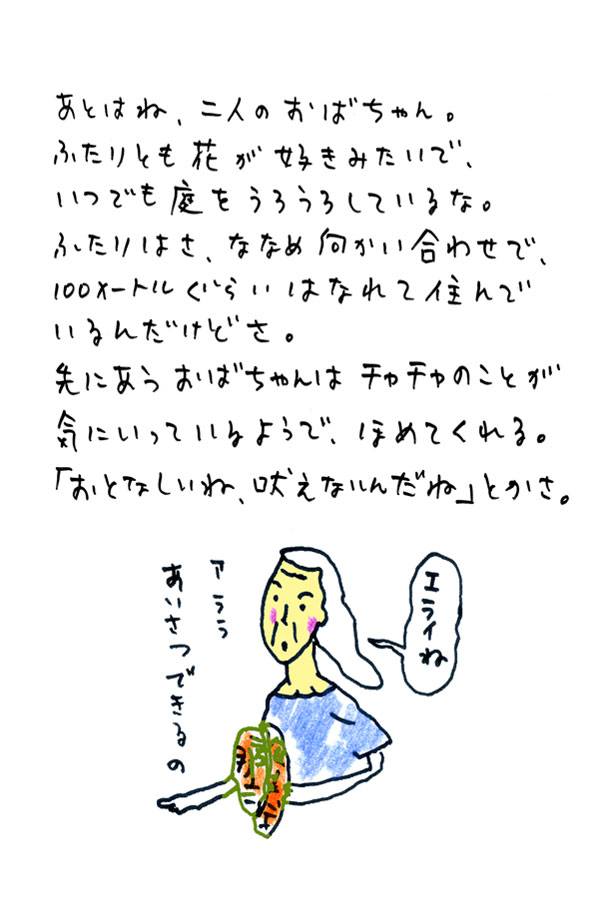 あとはね、二人のおばちゃん。
ふたりとも花が好きみたいで、
いつでも庭をうろうろしているな。
ふたりはさ、ななめ向かい合わせで、
100メートルぐらいはなれて住んで
いるんだけどさ。
先にあうおばちゃんはチャチャのことが
気にいっているようで、ほめてくれる。
「おとなしいね、吠えないんだね」とかさ。
エライね
アララ
あいさつできるの